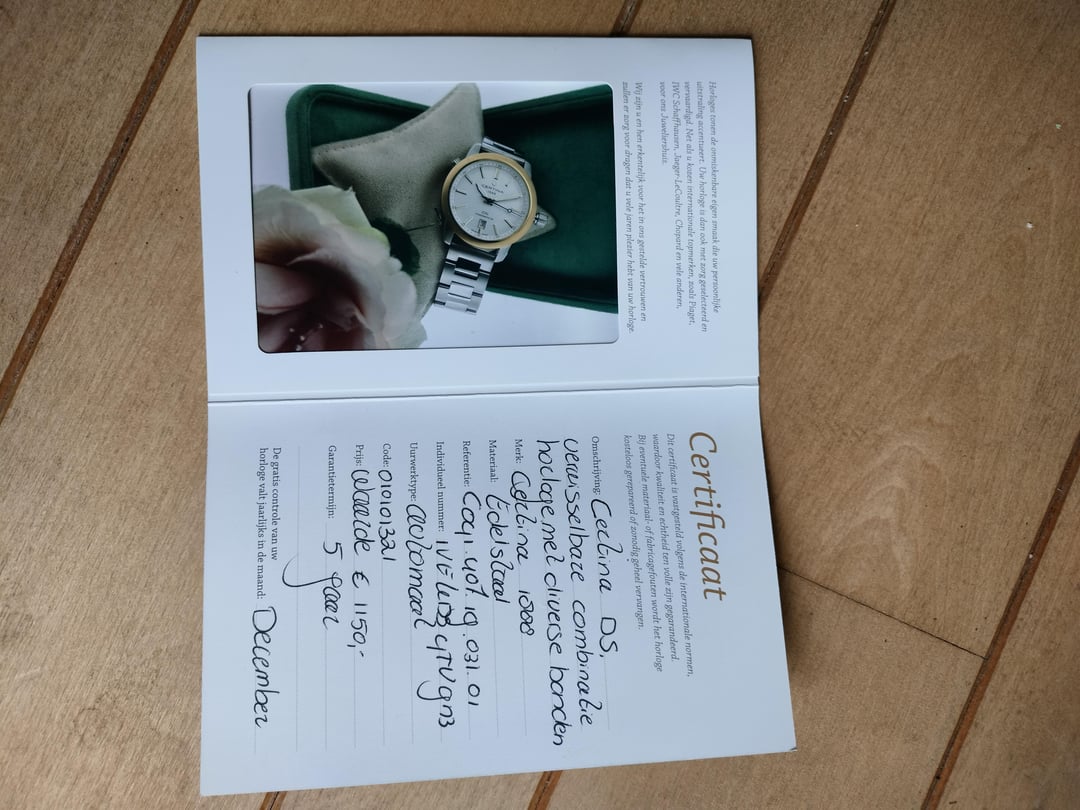 Horloges tonen de onmiskenbare eigen smaak die uw persoonlijke
uitstraling accentueert. Uw horloge is dan ook met zorg geselecteerd en
vervaardigd. Net als u kozen internationale topmerken, zoals Piaget,
IWC Schaffhausen, Jaeger-LeCoultre, Chopard en vele anderen,
voor ons Juweliershuis.
Wij zijn u en hen erkentelijk voor het in ons gestelde vertrouwen en
zullen er zorg voor dragen dat u vele jaren plezier hebt van uw horloge.
CERTINA
Certificaat
Dit certificaat is vastgesteld volgens de internationale normen,
waardoor kwaliteit en echtheid ten volle zijn gegarandeerd.
Bij eventuele materiaal- of fabricagefouten wordt het horloge
kosteloos gerepareerd of zonodig geheel vervangen.
Omschrijving: Certina DS,
verwisselbare combinatie
horloge, met diverse banden
Merk: Certina 1888
Materiaal: Edelstaal
Referentie: C041.407.19.031.01
Individueel nummer:
Uurwerktype: automaat
Code: 010101321
Prijs: Waarde € 1150,-
Garantietermijn: 5 jaar
De gratis controle van uw
horloge valt jaarlijks in de maand: December